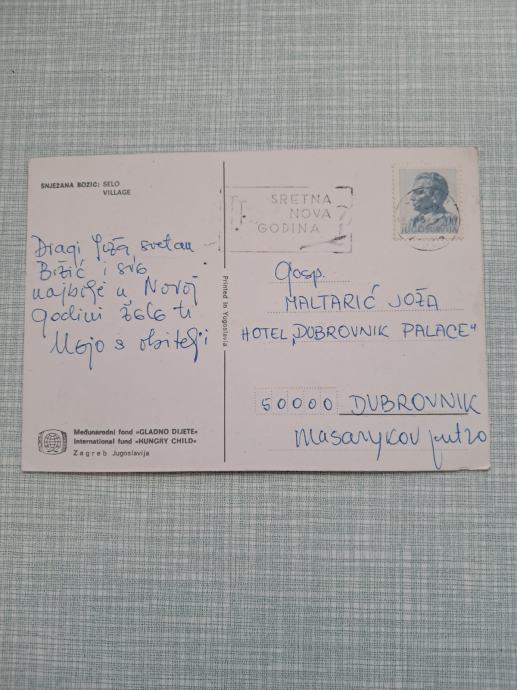 SNJEŽANA BOŽIĆ: SELO
VILLAGE
Dragi Joža, svetan
Božić i sve
najbolje u Novoj
godini žele ti
s obitelji
Međunarodni fond »GLADNO DIJETE«
International fund »HUNGRY CHILD«
Zagreb Jugoslavija
Printed in Yugoslavia
SRETNA
NOVA
GODINA
JUGOSLAVIJA
Gosp.
MALTARIĆ JOŽA
HOTEL „DUBROVNIK PALACE"
50000 DUBROVNIK
Masarykov put 20